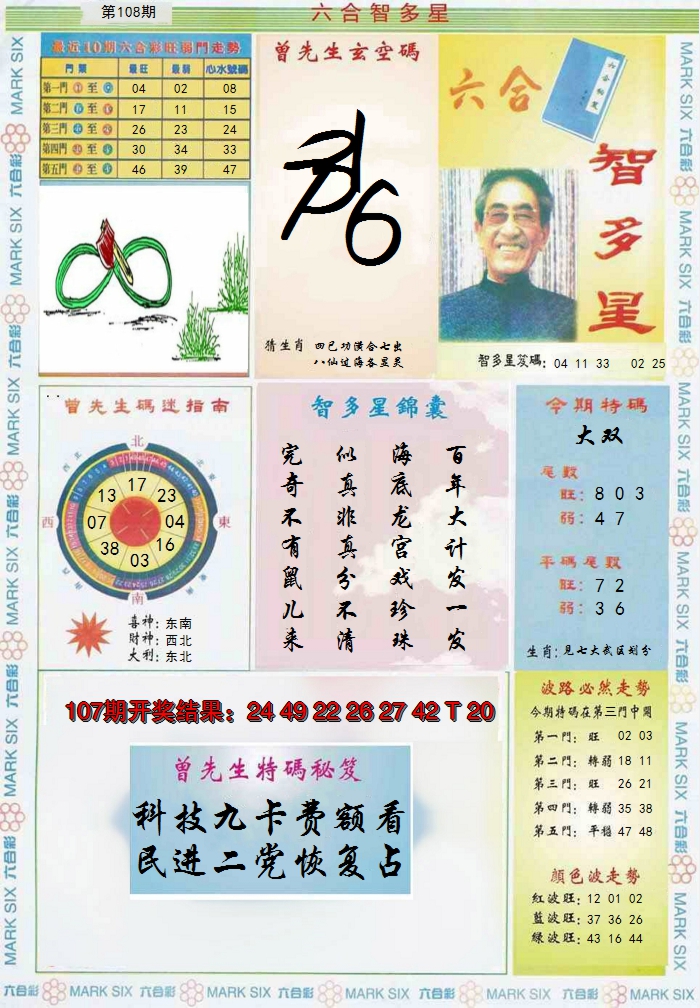 第108期
六合智多星
最近10期六合彩旺弱門走勢
門類 最旺 最弱 心水號碼
第一門 至 04 02 08
第二門 至 17 11 15
第三門 至 26 23 24
第四門 至 30 34 33
第五門 至 46 39 47
曾先生玄空碼
6
猜生肖 四已功横合七出
八仙过海各显灵
六合
智多星
智多星笈碼: 04 11 33 02 25
曾先生碼迷指南
北
西
東
南
17
13 23
07 04
38 16
03
喜神: 东南
財神: 西北
大利: 东北
智多星錦囊
百年大计发一发
海底龙宫戏珍珠
似真非真分不清
完奇不有鼠儿来
今期特碼
大双
尾數
旺: 8 0 3
弱: 4 7
平碼尾數
旺: 7 2
弱: 3 6
生肖: 見七大武区划分
107期开奖结果: 24 49 22 26 27 42 T 20
曾先生特碼秘笈
科技九卡费额看
民进二党恢复占
波路必然走勢
今期特碼在第三門中開
第一門: 旺 02 03
第二門: 轉弱 18 11
第三門: 旺 26 21
第四門: 轉弱 35 38
第五門: 平穩 47 48
顏色波走勢
紅波旺: 12 01 02
藍波旺: 37 36 26
綠波旺: 43 16 44
MARK SIX 六合彩 MARK SIX 六合彩 MARK SIX 六合彩 MARK SIX 六合彩 MARK SIX